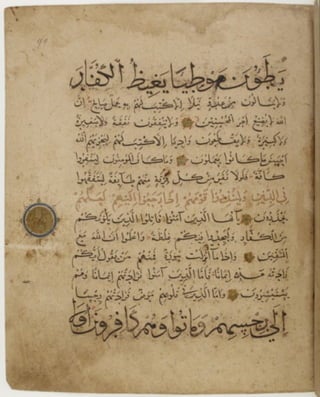 يطؤون موطيا يغيظ الكفار
ولا ينالون من عدو نيلا الا كتب لهم به عمل صالح ان
الله لا يضيع اجر المحسنين ولا ينفقون نفقة صغيرة
ولا كبيرة ولا يقطعون واديا الا كتب لهم ليجزيهم الله
احسن ما كانوا يعملون وما كان المؤمنون لينفروا
كافة فلولا نفر من كل فرقة منهم طائفة ليتفقهوا
في الدين ولينذروا قومهم اذا رجعوا اليهم لعلهم
يحذرون يا ايها الذين آمنوا قاتلوا الذين يلونكم
من الكفار وليجدوا فيكم غلظة واعلموا ان الله مع
المتقين واذا ما انزلت سورة فمنهم من يقول ايكم
زادته هذه ايمانا فاما الذين آمنوا فزادتهم ايمانا وهم
يستبشرون واما الذين في قلوبهم مرض فزادتهم رجسا
الى رجسهم وماتوا وهم كافرون اولا